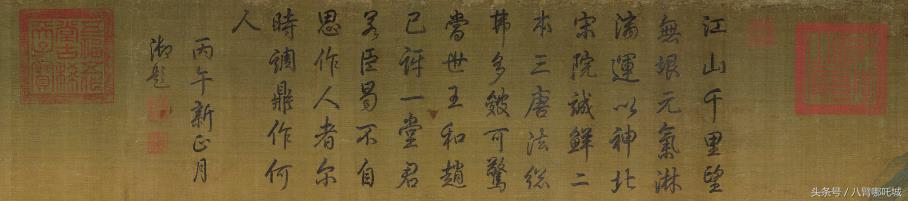 江山千里望
無垠元氣淋
漓運以神北
宋院誠鮮二
本三唐法総
弗多皴可驚
當世王和趙
已訝一堂君
若臣曷不自
思作人者尔
時調鼎作何
人
丙午新正月
御題
头条号 / 八臂哪吒城